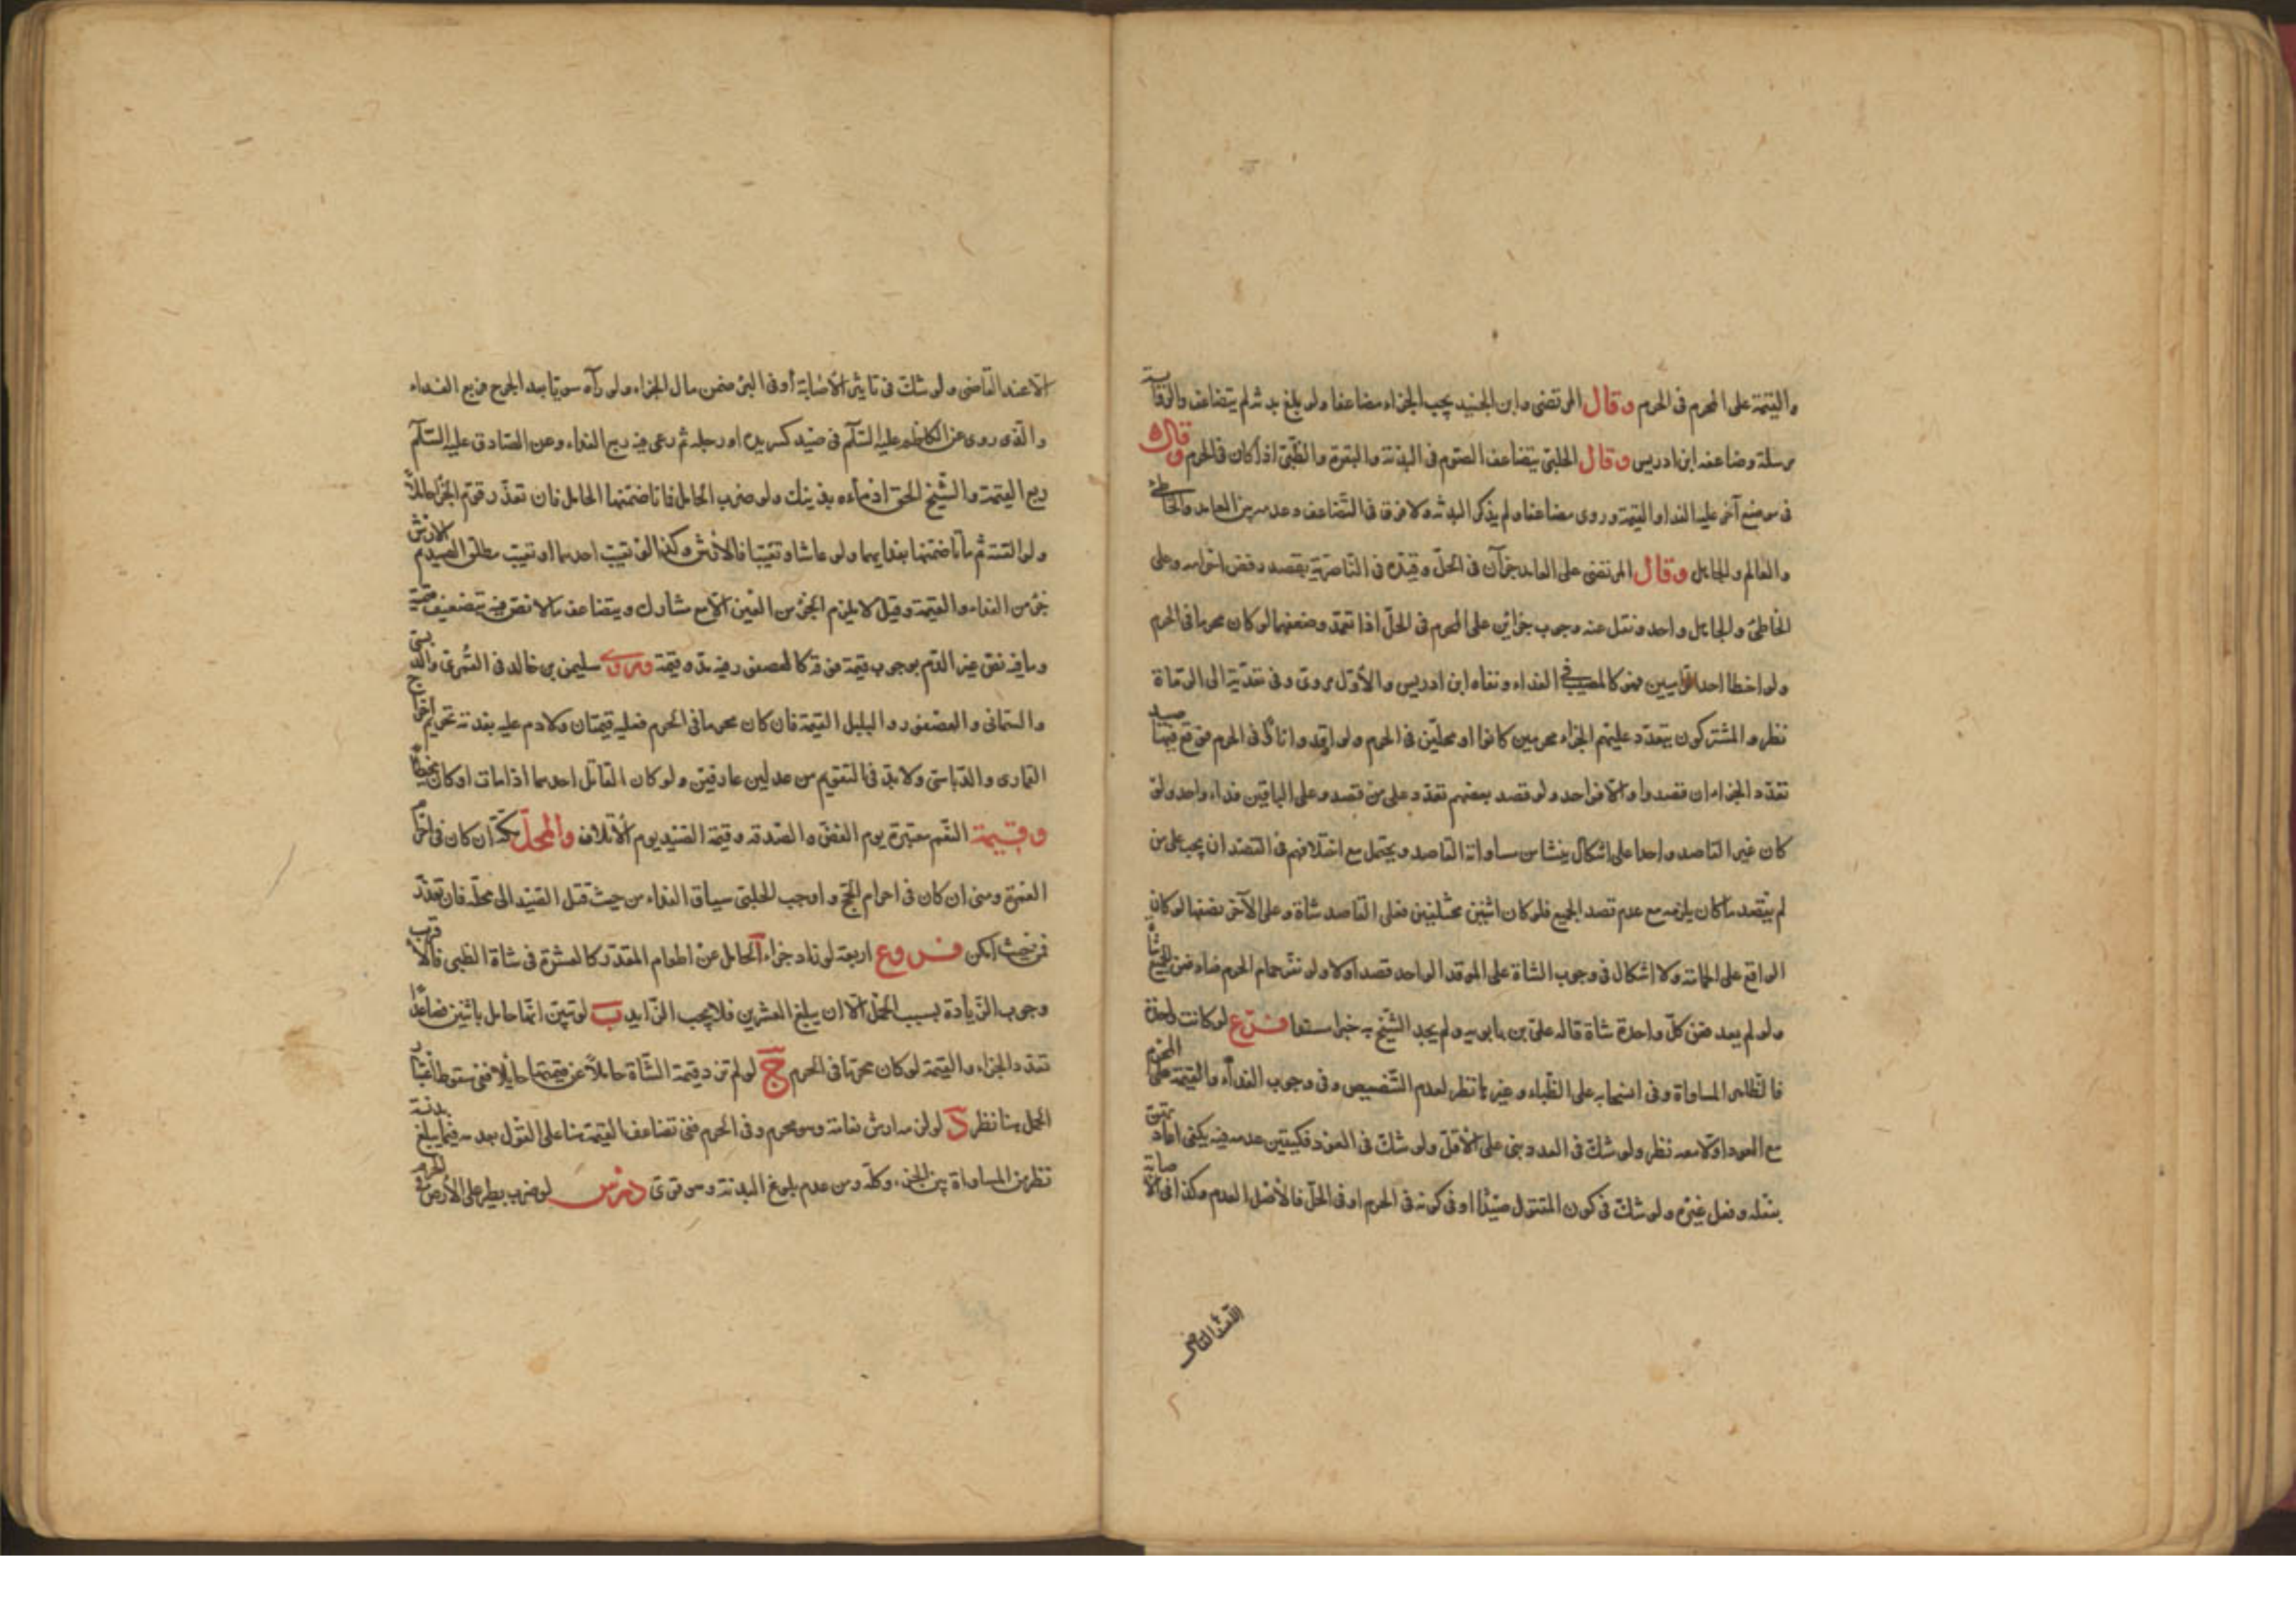 والقيمة على المحرم فى الحرم وقال المرتضى وابن الجنيد يجب الجزاء مضاعفا ولو بلغ بدنة لم يتضاعف والرواية
مرسلة وضاعفه ابن ادريس وقال الحلبى يتضاعف الصوم فى البدنة والبقرة والظبى اذا كان فى الحرم وقال
فى موضع آخر عليه الفداء والقيمة وروى مضاعفا ولم يذكر البدنة ولا فرق فى التضاعف وعدمه بين العامد والخاطئ
والعالم والجاهل وقال المرتضى على العامد جزآن فى الحل وقيده فى الناصرية بقصد رفض احرامه وعلى
الخاطئ والجاهل واحد ونقل عنه وجوب جزائين على المحرم فى الحل اذا تعمد وضعفهما لو كان محرما فى الحرم
ولو اخطا احد الراميين فهو كالمصيب فى الفداء ونفاه ابن ادريس والأول مروى وفى تعديته الى الرماة
نظر والمشتركون يتعدد عليهم الجزاء محرمين كانوا او محلين فى الحرم ولو اوقدوا نارا فى الحرم فوقع فيها صيد
تعدد الجزاء ان قصدوا والا فواحد ولو قصد بعضهم تعدد على من قصد وعلى الباقين فداء واحد ولو
كان غير القاصد واحدا على اشكال ينشا من مساواته القاصد ويحتمل مع اختلافهم فى القصد ان يجب على من
لم يقصد ما كان يلزمه مع عدم قصد الجميع فلو كان اثنين مختلفين فعلى القاصد شاة وعلى الآخر نصفها لو كان
الواقع كالحمامة ولا اشكال فى وجوب الشاة على الموقد الواحد قصد اولا ولو نفر حمام الحرم فعاد فعن الجميع شاة
ولو لم يعد فعن كل واحدة شاة قاله على بن بابويه ولم يجد الشيخ به خبرا مسندا فرع لو كانت واحدة
فالظاهر المساواة وفى انسحابه على الظباء وغيرها نظر لعدم التنصيص وفى وجوب الفداء والقيمة على المحرم
مع العود او لا معه نظر ولو شك فى العدد بنى على الأقل ولو شك فى العود فكيقين عدمه فيه يكفى اعادته
بفعله وفعل غيره ولو شك فى كون المقتول صيدا او فى كونه فى الحرم او فى الحل فالأصل العدم وكذا فى الاصابة
الا عند القاضى
الا عند القاضى ولو شك فى تاثير الاصابة أو فى البرء ضمن مال الجزاء ولو رآه سويا بعد الجرح فربع الفداء
والذى روى عن الكاظم عليه السلام فى صيد كسر يده او رجله ثم رعى فيه ربع الفداء وعن الصادق عليه السلام
ربع القيمة والشيخ الحق ادماءه بذينك ولو ضرب الحامل فماتا ضمنهما الحامل فان تعذر قوم الجزاء حاملا
ولو القته ثم ماتا ضمنهما بفدائهما ولو عاشا وتعيبا فالارش وكذا لو تعيب احدهما او تعيب مطلق الصيد فالارش
جزء من الفداء والقيمة وقيل لا يلزم الجزء من العين الا مع مشارك ويتضاعف ما لا نص فيه بتضعيف قيمته
وما فيه نص غير الدم بوجوب قيمة فوقه كالعصفور فيه مد وقيمة وروى سليمن بن خالد فى القمرى والدبسى
والسمانى والعصفور والبلبل القيمة فان كان محرما فى الحرم فعليه قيمتان ولا دم عليه بقدنة تحريم اخراج
القمارى والدباسى ولا بد فى التقويم من عدلين عارفين ولو كان القاتل احدهما اذا مات او كان مخطأ
وقيمة النعم معتبرة يوم الفض والصدقه وقيمة الصيد يوم الاتلاف والمحل مكة ان كان فى احرام
العمرة ومنى ان كان فى احرام الحج واوجب الحلبى سياق الفداء من حيث قتل الصيد الى محله فان تعذر
فمن حيث امكن فروع اربعة لو زاد جزاء الحامل عن اطعام المقدر كالعشرة فى شاة الظبى فالأقرب
وجوب الزيادة بسبب الحمل الا ان يبلغ العشرين فلا يجب الزايد ب لو تبين انها حامل باثنين فصاعدا
تعدد الجزاء والقيمة لو كان محرما فى الحرم ج لو لم تزد قيمة الشاة حاملا عن قيمتها حايلا ففى سقوط اعتبار
الحمل هنا نظر د لو لزمه ارش نعامة وهو محرم وفى الحرم ففى تضاعف القيمة بناء على القول بعدمه فيما يبلغ بدنة
نظر من المساواة بين الجزء وكله ومن عدم بلوغ البدنة وهو قوى درس لو ضرب بطير على الأرض فى الحرم